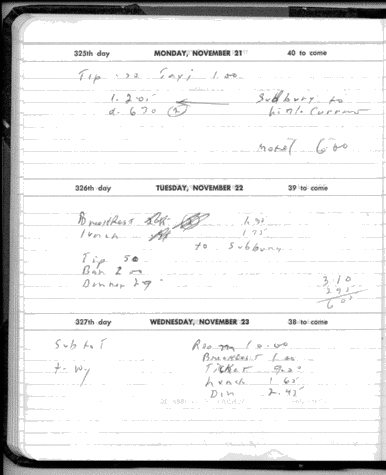 325th day MONDAY, NOVEMBER 21 40 to come
Tip .50 Taxi 1.00
l. 2.05 Sudbury to
d. 6.70 2 Little Current
Motel 6.00
326th day TUESDAY, NOVEMBER 22 39 to come
Breakfast
lunch 1.75
to Sudbury
Tip 50
Bar 2.00
Dinner 2.95
3.10
2.95
6.05
327th day WEDNESDAY, NOVEMBER 23 38 to come
Sub to T Room 10.00
Breakfest 1.00
t. Wy Ticket 9.00
Lunch 1.65
Din 2.45